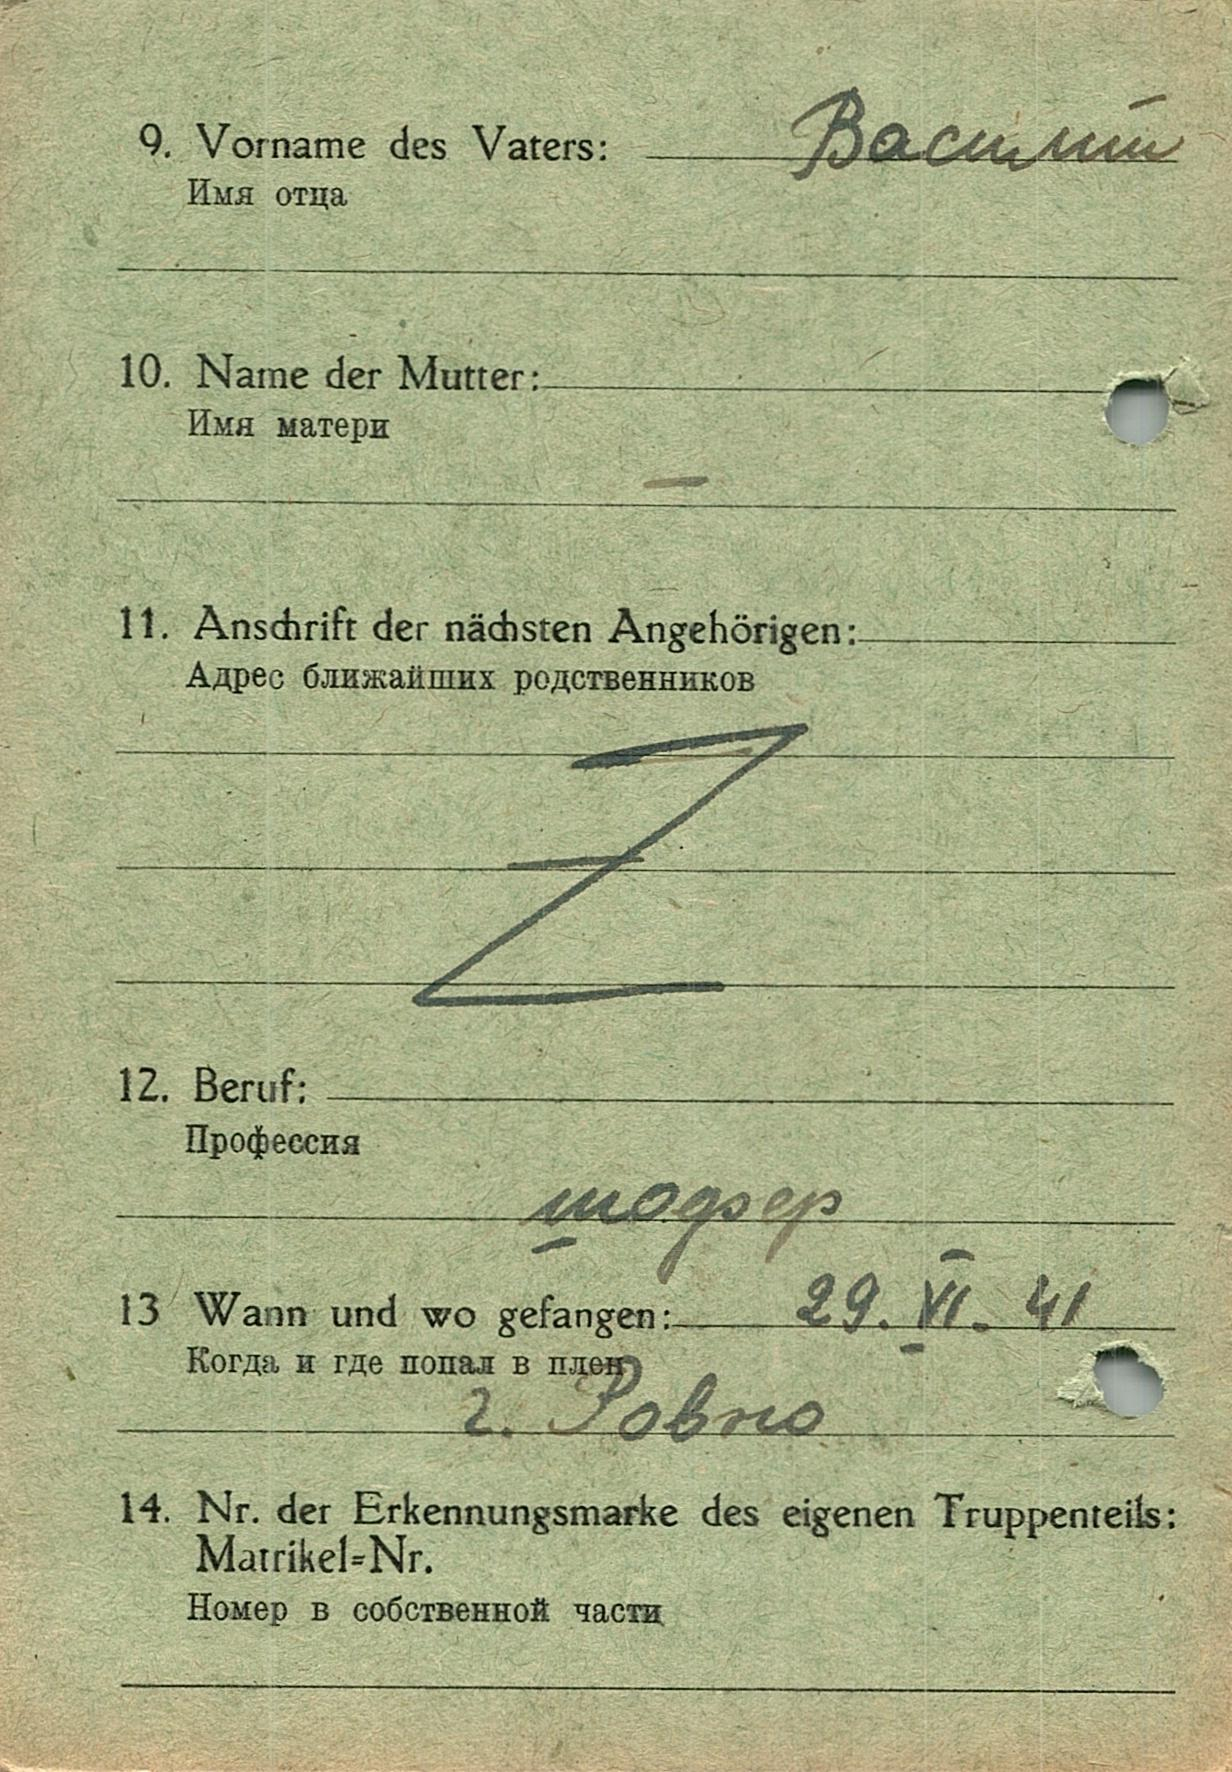 9. Vorname des Vaters: Василий
Имя отца
10. Name der Mutter:
Имя матери
—
11. Anschrift der nächsten Angehörigen:
Адрес ближайших родственников
Z
12. Beruf:
Профессия
шофер
13 Wann und wo gefangen: 29. VI. 41
Когда и где попал в плен
г. Ровно
14. Nr. der Erkennungsmarke des eigenen Truppenteils:
Matrikel=Nr.
Номер в собственной части